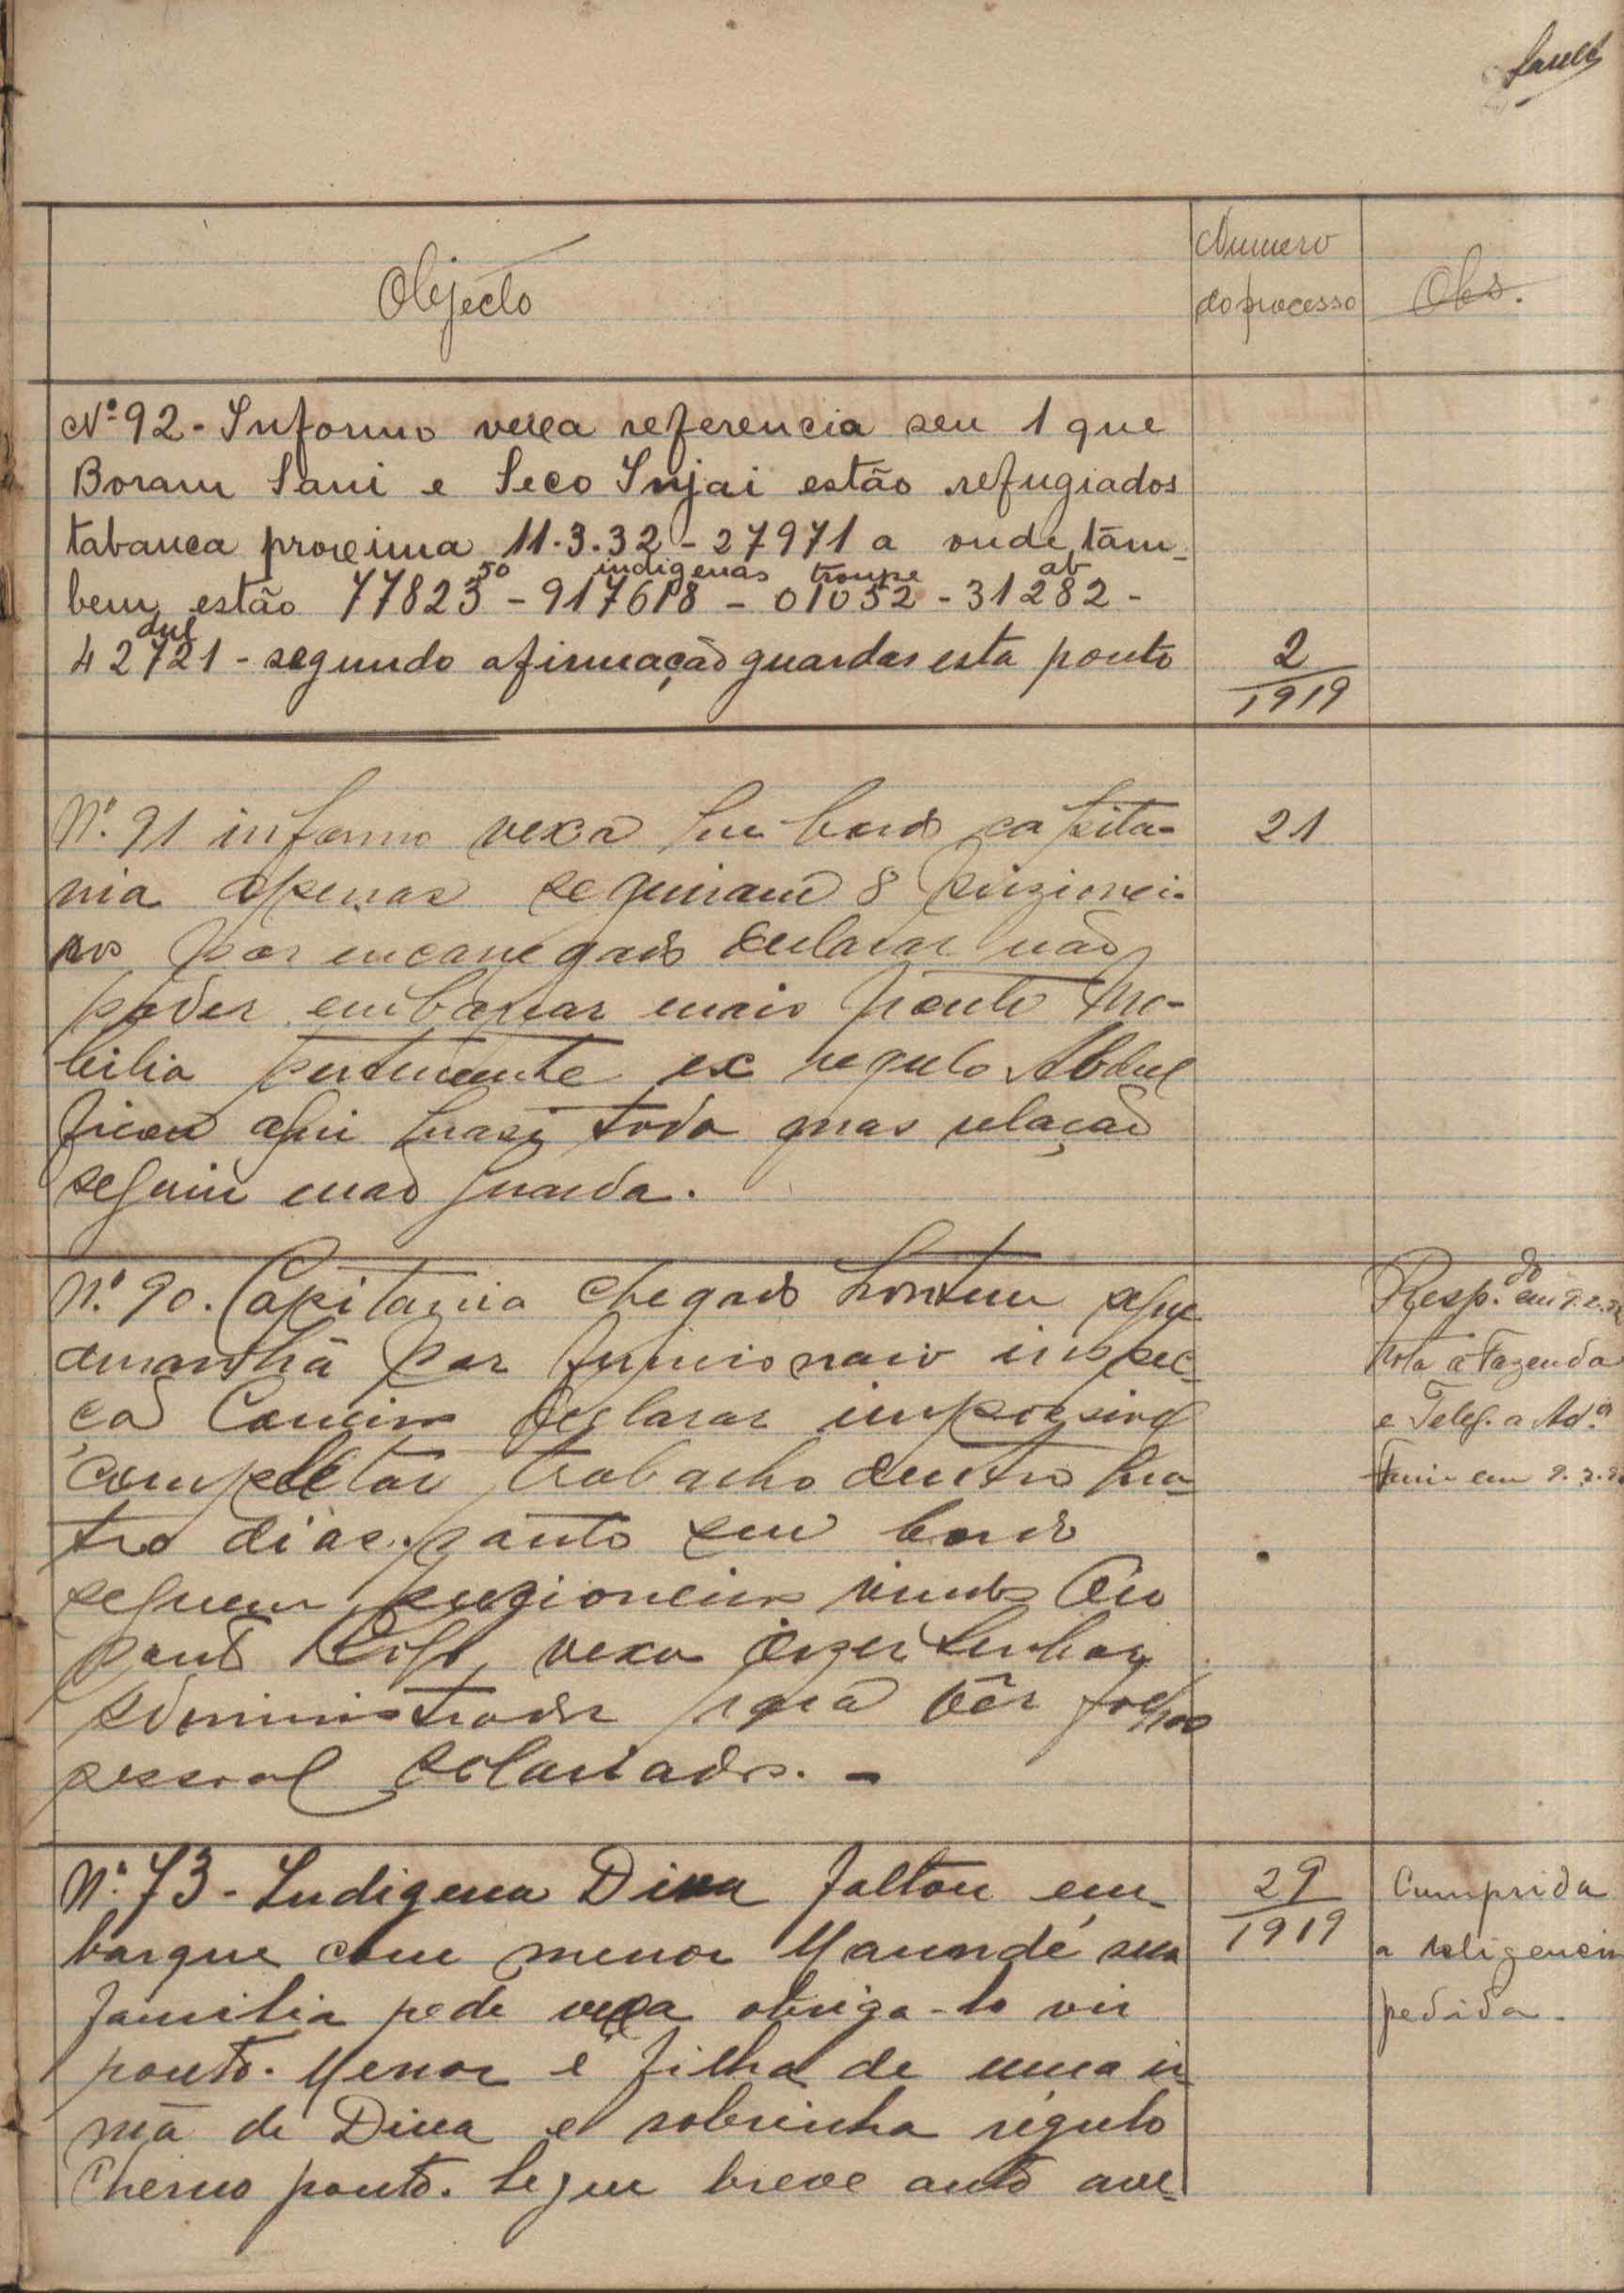 Objecto
Numero
do processo
Obs.
Nº 92 - Informo vexa referencia seu 1 que
Boram Sani e Seco Injai estão refugiados
tabanca proxima 11.3.32 - 27971 a onde tam-
50 indigenas troupe ab
bem estão 77823 - 917618 - 01052 - 31282 -
dul
42721 - segundo afirmação guardas esta ponto
2
1919
Nº 91 informo vexa bordo capita-
21
nia apenas seguiram 8 prizionei-
ros por encarregado declarar não
poder embarcar mais ponto Mo-
bilia pertencente ex regulo Abdul
ficou aqui quasi toda mas relação
seguiu mão guarda.
Nº 90. Capitania chegado hontem segue
amanhã por funcionario inspec-
ção declarar impossivel
completar trabalho dentro qua-
tro dias. ponto seu bordo
seguem prizioneiros vindos
ponto vexa dizer senhor
administrador para vêr folhas
pessoal salariado. -
Resp.do em 9.2.32
Nota a Fazenda
e Teleg. a Ad.or
Farim em 9.2.32
Nº 73 - Indigena Dina faltou em-
barque com menor Maundé sua
familia pede vexa obriga-lo vir
ponto. Menor é filha de uma ir-
mã de Dina e sobrinha régulo
Cherno ponto. Segue breve auto ave-
29
1919
Cumprida
a deligencia
pedida.